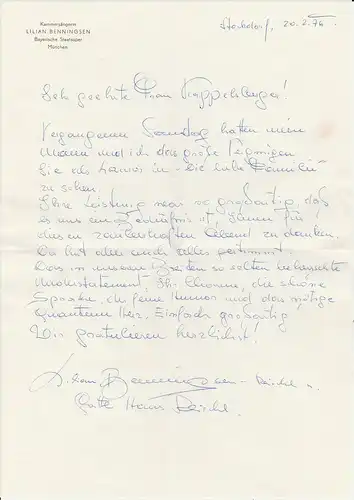 Kammersängerin
LILIAN BENNINGSEN
Bayerische Staatsoper
München
Stockdorf, 20.2.74
Sehr geehrte Frau
Vergangenen Sonntag hatten mein
Mann und ich das große Vergnügen
Sie als in "Die liebe Familie"
zu sehen.
Ihre Leistung war so großartig, daß
es uns ein Bedürfnis ist, Ihnen für
diesen zauberhaften Abend zu danken.
Da hat aber auch alles gestimmt.
Das in unseren Zeiten so selten beherrschte
Understatement, Ihr Charme, die schöne
Sprache, der feine Humor und das nötige
Quantum Herz. Einfach großartig!
Wir gratulieren herzlichst!
Lilian Benningsen-
Gatte Hans